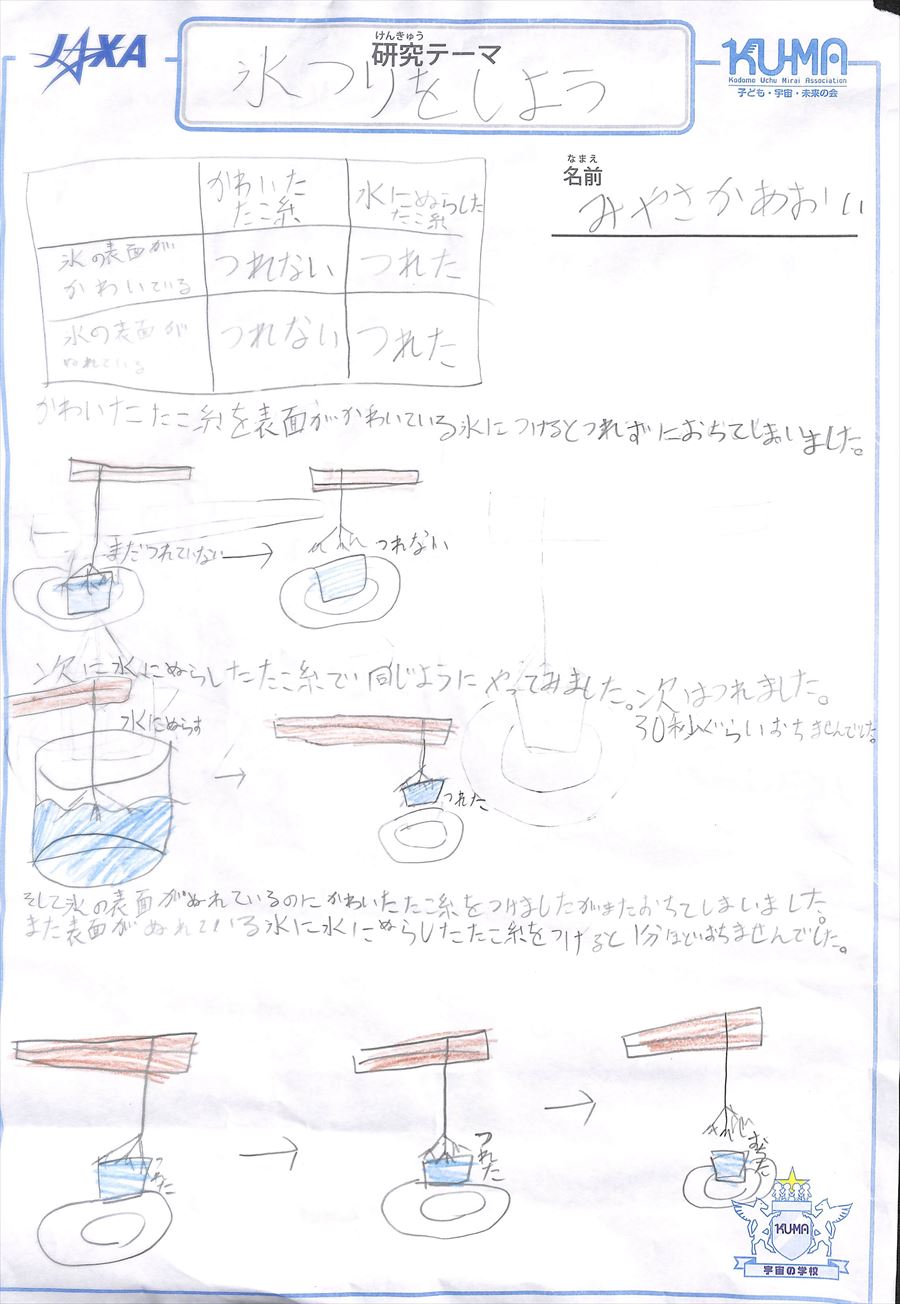 JAXA
けんきゅう
研究テーマ
氷つりをしよう
KU-MA
Kodomo Uchu Mirai Association
子ども・宇宙・未来の会
なまえ
名前
みやさかあおい
かわいた
たこ糸
水にぬらした
たこ糸
氷の表面が
かわいている
つれない
つれた
氷の表面が
ぬれている
つれない
つれた
かわいたたこ糸を表面がかわいている氷につけるとつれずにおちてしまいました。
まだつれていない
つれない
次に水にぬらしたたこ糸で同じようにやってみました。次はつれました。
30秒ぐらいおちませんでした。
水にぬらす
つれた
そして氷の表面がぬれているのにかわいたたこ糸をつけましたがまたおちてしまいました。
また表面がぬれている氷に水にぬらしたたこ糸をつけると1分ほどおちませんでした。
つれた
つれた
おちた
KUMA
宇宙の学校